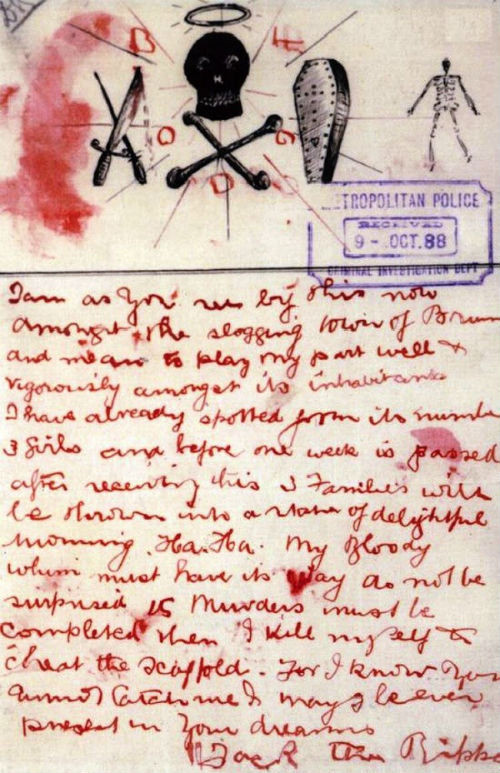 METROPOLITAN POLICE
RECEIVED
9 - OCT. 88
CRIMINAL INVESTIGATION DEPT
I am as you see by this now
amongst the slogging town of Brum
and mean to play my part well &
vigorously amongst its inhabitants
I have already spotted from its number
3 Girls and before one week is passed
after receiving this 3 Families will
be thrown into a state of delightful
mourning. Ha. Ha. My Bloody
whim must have its way do not be
surprised 15 Murders must be
completed then I kill myself to
cheat the scaffold. For I know you
cannot catch me & may I be ever
present in your dreams
Jack the Ripp